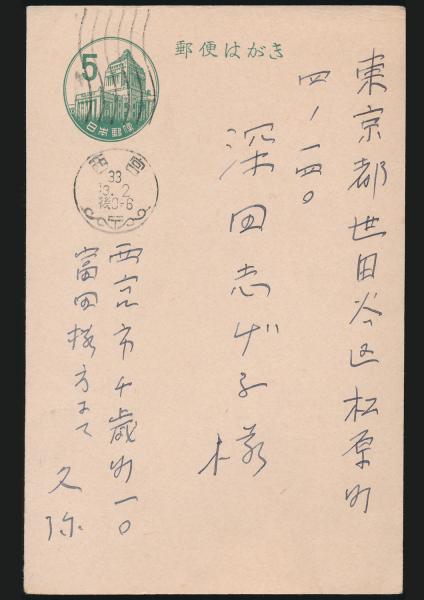 郵便はがき
5
日本郵便
西宮
33
3.2
後0-6
東京都世田谷区松原町
四ノ一四〇
深田志げ子様
西宮市千歳町一〇
富田様方にて
久弥